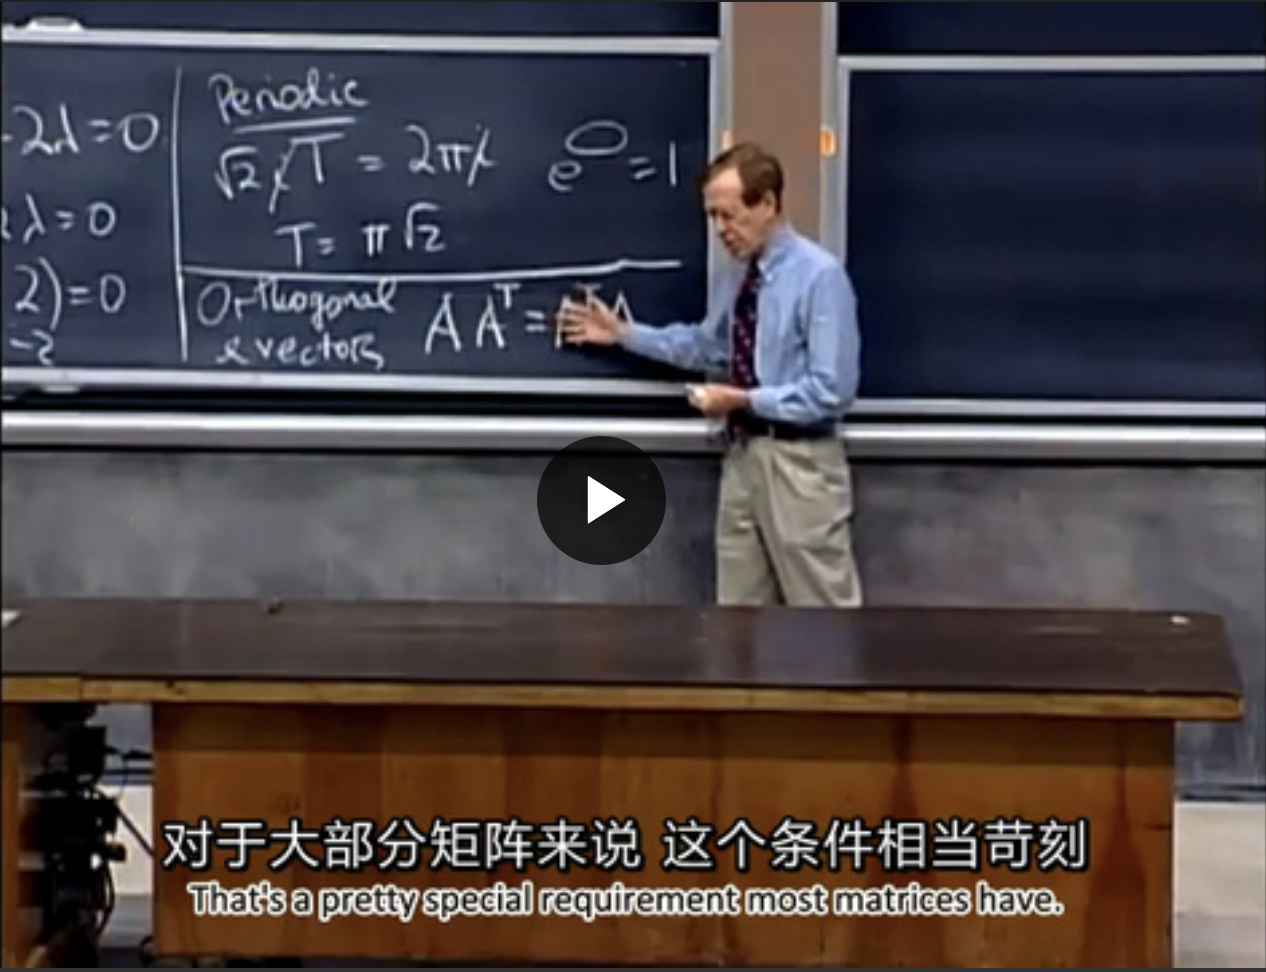 -2λ=0
λ=0
2)=0
-2
Periodic
√2 i T = 2πi
e =1
T= π√2
Orthogonal
evectors
A Aᵀ = AᵀA
对于大部分矩阵来说 这个条件相当苛刻
That's a pretty special requirement most matrices have.